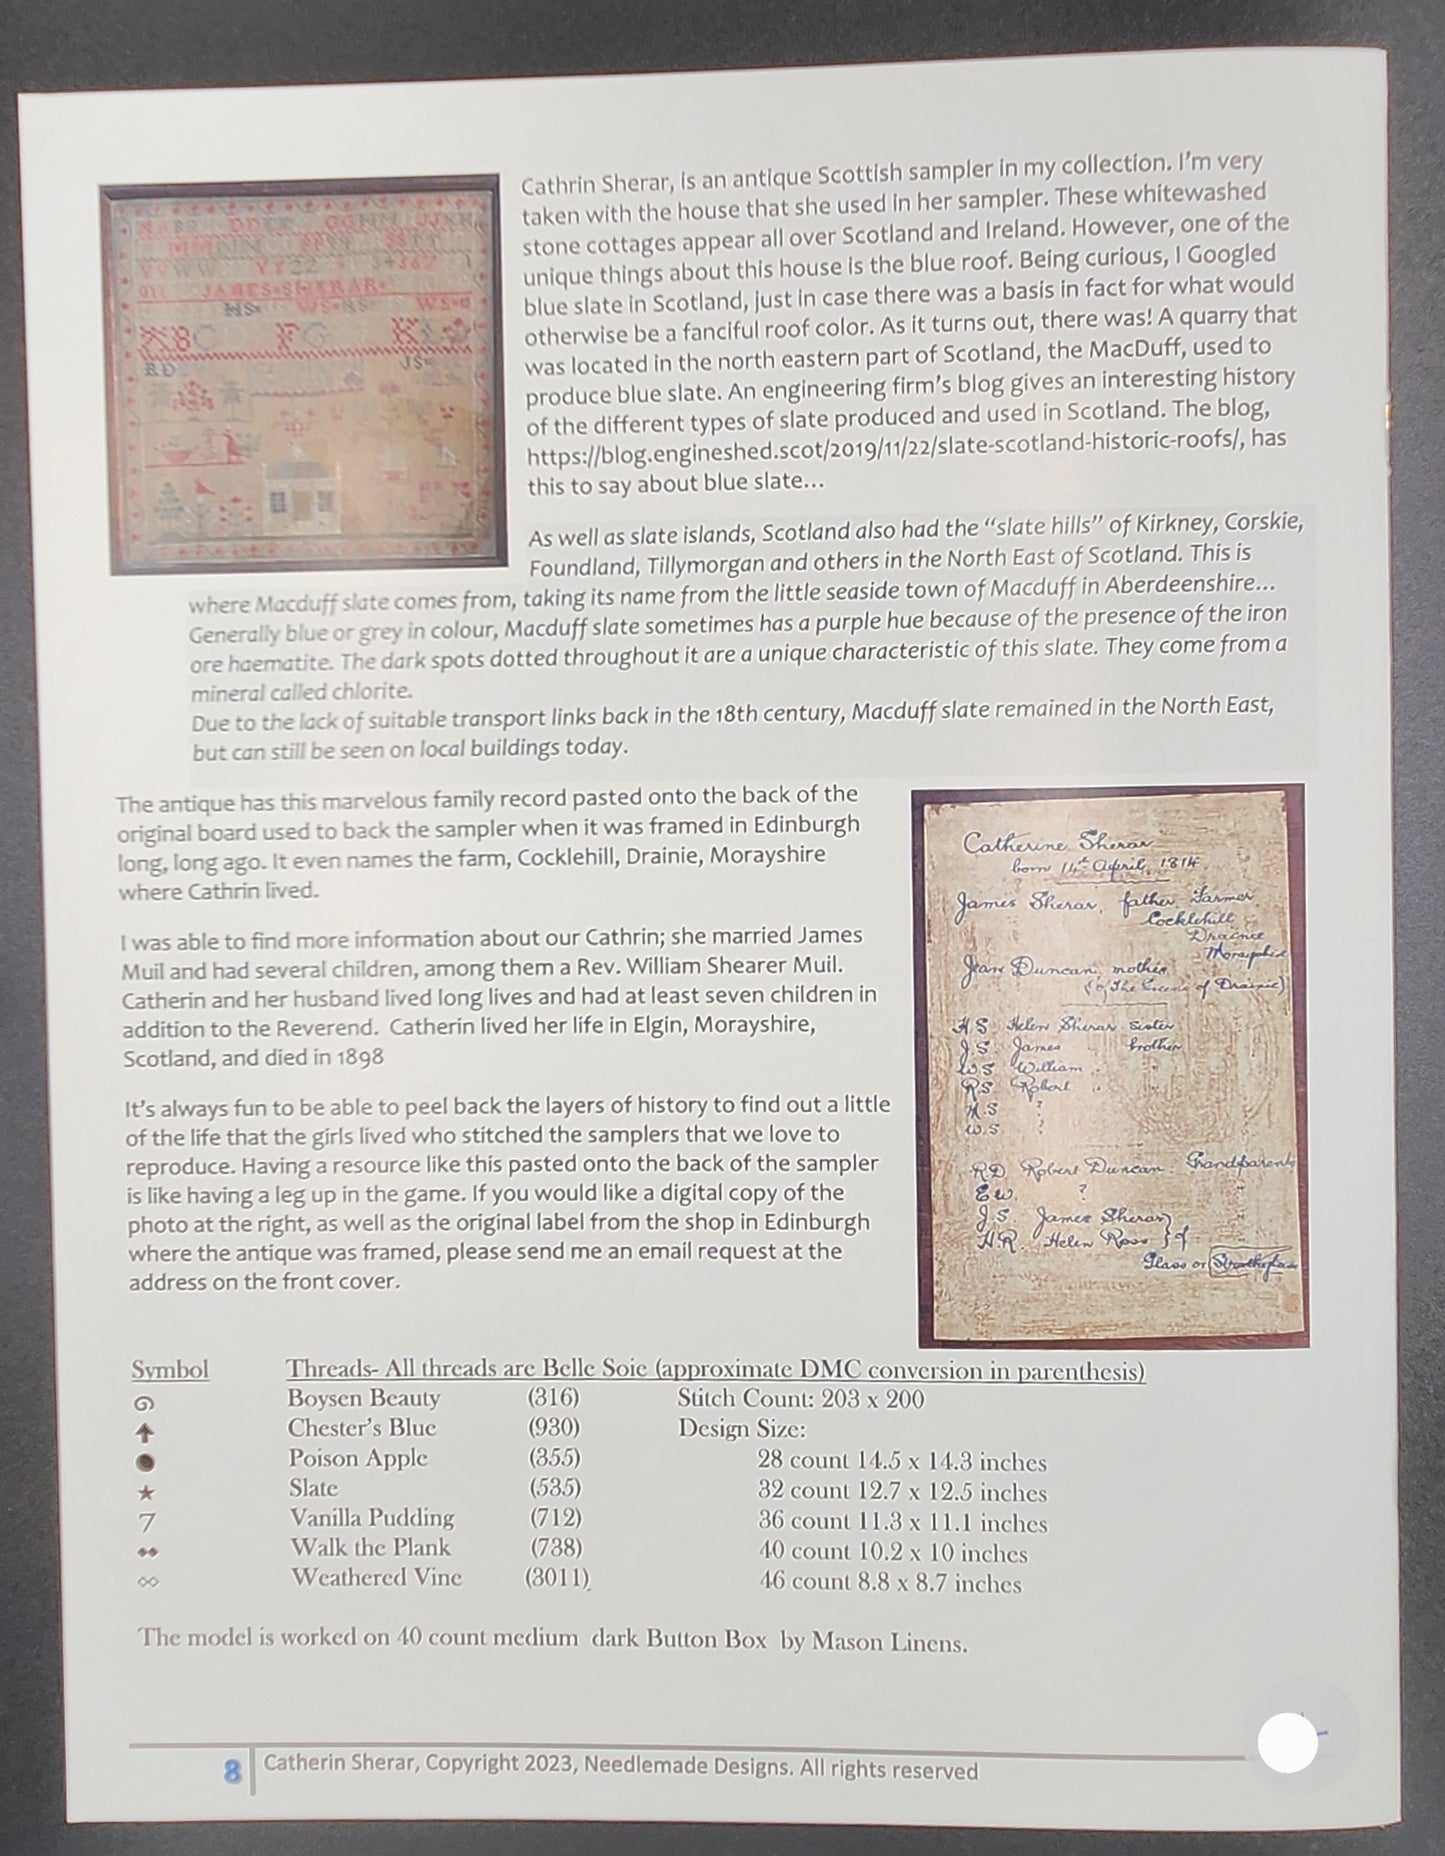 JAMES·SHERAR·
HS·
RD
JS·
Cathrin Sherar, is an antique Scottish sampler in my collection. I'm very
taken with the house that she used in her sampler. These whitewashed
stone cottages appear all over Scotland and Ireland. However, one of the
unique things about this house is the blue roof. Being curious, I Googled
blue slate in Scotland, just in case there was a basis in fact for what would
otherwise be a fanciful roof color. As it turns out, there was! A quarry that
was located in the north eastern part of Scotland, the MacDuff, used to
produce blue slate. An engineering firm's blog gives an interesting history
of the different types of slate produced and used in Scotland. The blog,
https://blog.engineshed.scot/2019/11/22/slate-scotland-historic-roofs/, has
this to say about blue slate...
As well as slate islands, Scotland also had the "slate hills" of Kirkney, Corskie,
Foundland, Tillymorgan and others in the North East of Scotland. This is
where Macduff slate comes from, taking its name from the little seaside town of Macduff in Aberdeenshire...
Generally blue or grey in colour, Macduff slate sometimes has a purple hue because of the presence of the iron
ore haematite. The dark spots dotted throughout it are a unique characteristic of this slate. They come from a
mineral called chlorite.
Due to the lack of suitable transport links back in the 18th century, Macduff slate remained in the North East,
but can still be seen on local buildings today.
The antique has this marvelous family record pasted onto the back of the
original board used to back the sampler when it was framed in Edinburgh
long, long ago. It even names the farm, Cocklehill, Drainie, Morayshire
where Cathrin lived.
I was able to find more information about our Cathrin; she married James
Muil and had several children, among them a Rev. William Shearer Muil.
Catherin and her husband lived long lives and had at least seven children in
addition to the Reverend. Catherin lived her life in Elgin, Morayshire,
Scotland, and died in 1898
It's always fun to be able to peel back the layers of history to find out a little
of the life that the girls lived who stitched the samplers that we love to
reproduce. Having a resource like this pasted onto the back of the sampler
is like having a leg up in the game. If you would like a digital copy of the
photo at the right, as well as the original label from the shop in Edinburgh
where the antique was framed, please send me an email request at the
address on the front cover.
Catherine Sherar
born 14th April, 1814
James Sherar, father Farmer
Cocklehill
Drainie
Morayshire
Jean Duncan, mother
(of The Greens of Drainie)
H S. Helen Sherar sister
J.S. James " brother
W.S William "
R.S. Robert "
M.S ?
W.S ?
RD Robert Duncan. Grandparents
E W. ?
J.S. James Sherar}
H.R. Helen Ross } of
Glass or
Symbol Threads- All threads are Belle Soie (approximate DMC conversion in parenthesis)
Boysen Beauty (316) Stitch Count: 203 x 200
Chester's Blue (930) Design Size:
Poison Apple (355) 28 count 14.5 x 14.3 inches
Slate (535) 32 count 12.7 x 12.5 inches
7 Vanilla Pudding (712) 36 count 11.3 x 11.1 inches
Walk the Plank (738) 40 count 10.2 x 10 inches
Weathered Vine (3011) 46 count 8.8 x 8.7 inches
The model is worked on 40 count medium dark Button Box by Mason Linens.
8 Catherin Sherar, Copyright 2023, Needlemade Designs. All rights reserved